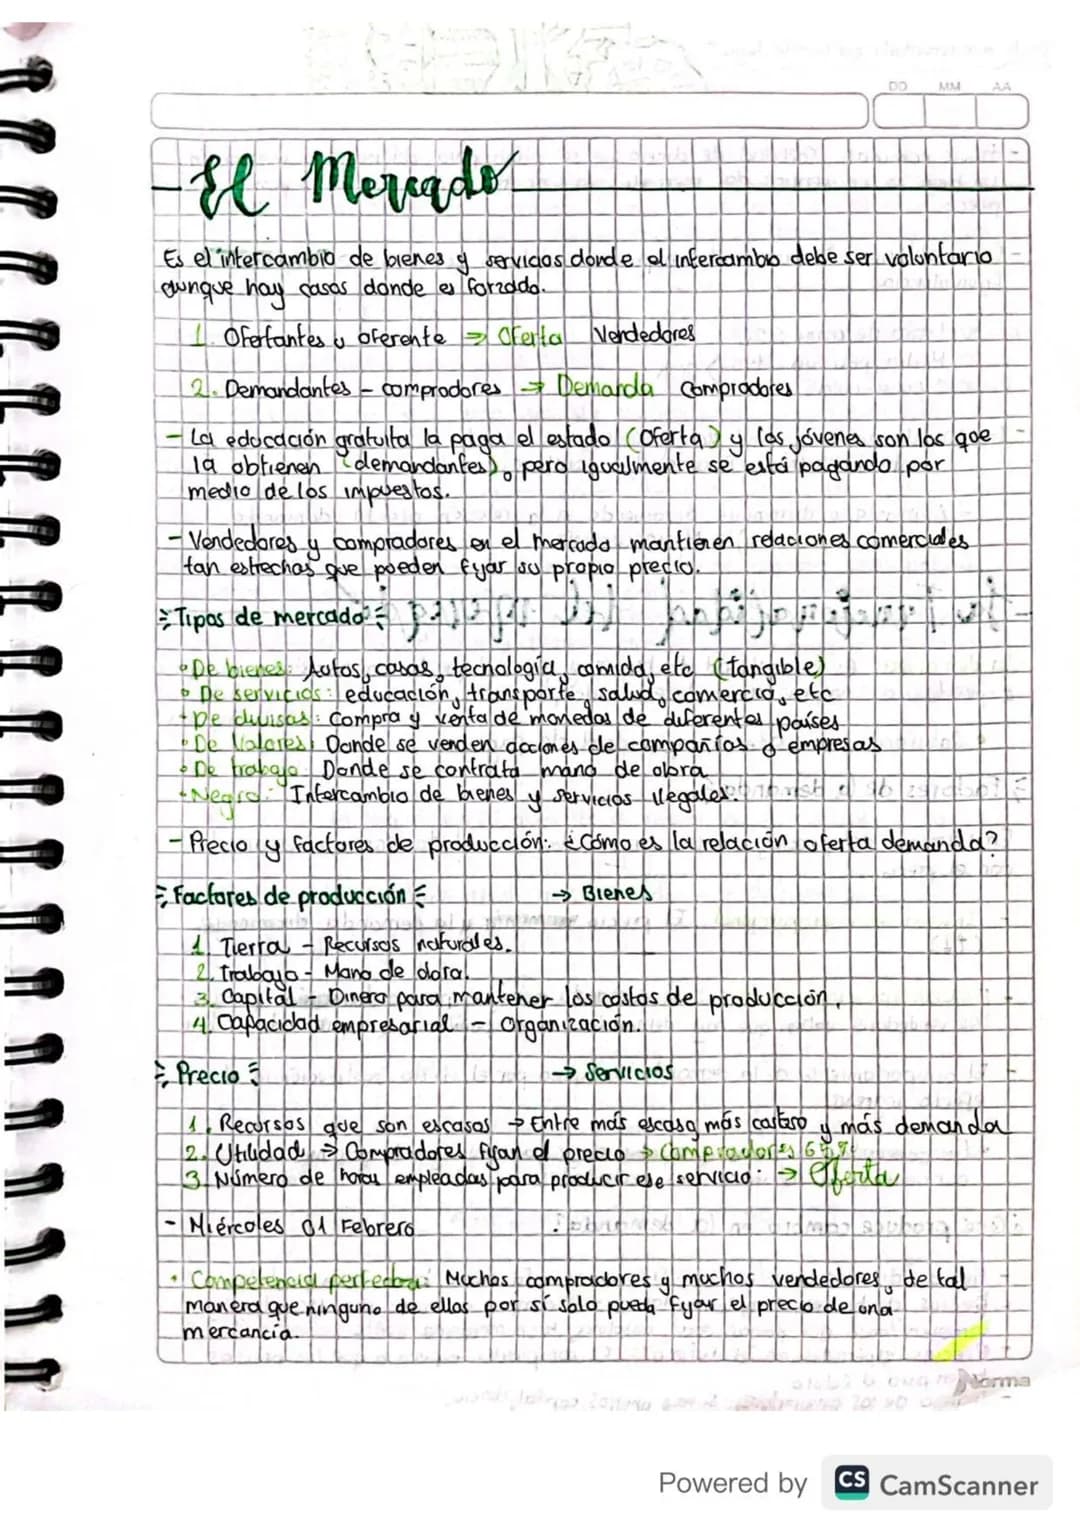 DD MM AA
El Mercado
Es el intercambio de bienes y servicios donde el intercambio debe ser voluntario
aunque hay casos donde es forzado.
1. Ofertantes y oferente → Oferta Vendedores
2. Demandantes - compradores → Demanda Compradores
- La educación gratuita la paga el estado (Oferta) y los jóvenes son los que
la obtienen (demandantes), pero igualmente se está pagando por
medio de los impuestos.
- Vendedores y compradores en el mercado mantienen relaciones comerciales
tan estrechas que pueden fijar su propio precio.
Tipos de mercado
• De bienes: Autos, casas, tecnología, comida, etc (tangible)
• De servicios: educación, transporte, salud, comercio, etc
• De divisas: Compra y venta de monedas de diferentes países
• De Valores: Donde se venden acciones de compañías o empresas
• De trabajo: Donde se contrata mano de obra
• Negro: Intercambio de bienes y servicios ilegales.
- Precio y factores de producción: ¿Cómo es la relación oferta demanda?
Factores de producción → Bienes
1. Tierra - Recursos naturales.
2. Trabajo - Mano de obra.
3. Capital - Dinero para mantener los costos de producción.
4. Capacidad empresarial - Organización.
Precio → Servicios
1. Recursos que son escasos → Entre más escaso más costoso y más demanda
2. Utilidad → Compradores fijan el precio → Compradores
3. Número de horas empleadas para producir ese servicio: → Oferta
- Miércoles 01 Febrero
• Competencia perfecta: Muchos compradores y muchos vendedores, de tal
manera que ninguno de ellos por sí solo pueda fijar el precio de una
mercancía.
Norma
Powered by CS CamScanner